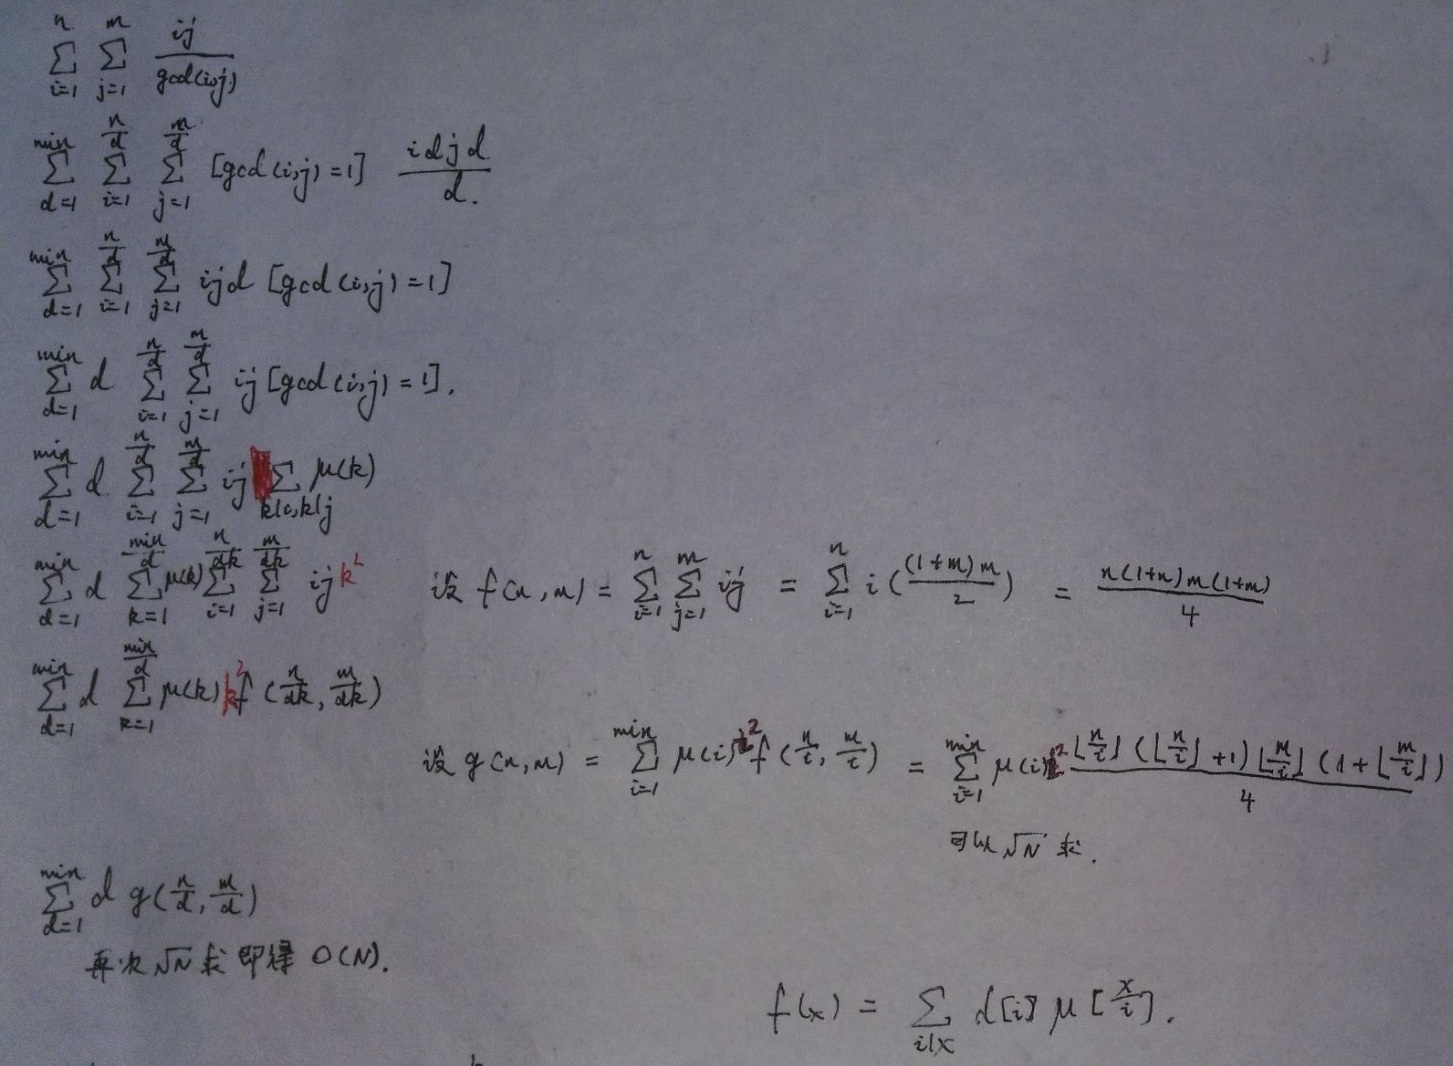 $\sum_{i=1}^{n} \sum_{j=1}^{m} \frac{ij}{gcd(i,j)}$
$\sum_{d=1}^{min} \sum_{i=1}^{\frac{n}{d}} \sum_{j=1}^{\frac{m}{d}} [gcd(i,j)=1] \frac{idjd}{d}.$
$\sum_{d=1}^{min} \sum_{i=1}^{\frac{n}{d}} \sum_{j=1}^{\frac{m}{d}} ijd [gcd(i,j)=1]$
$\sum_{d=1}^{min} d \sum_{i=1}^{\frac{n}{d}} \sum_{j=1}^{\frac{m}{d}} ij [gcd(i,j)=1].$
$\sum_{d=1}^{min} d \sum_{i=1}^{\frac{n}{d}} \sum_{j=1}^{\frac{m}{d}} ij \sum_{k|i,k|j} μ(k)$
$\sum_{d=1}^{min} d \sum_{k=1}^{\frac{min}{d}} μ(k) \sum_{i=1}^{\frac{n}{dk}} \sum_{j=1}^{\frac{m}{dk}} ij k^2$
设 $f(n,m) = \sum_{i=1}^{n} \sum_{j=1}^{m} ij = \sum_{i=1}^{n} i (\frac{(1+m)m}{2}) = \frac{n(1+n)m(1+m)}{4}$
$\sum_{d=1}^{min} d \sum_{k=1}^{\frac{min}{d}} μ(k) k^2 f(\frac{n}{dk}, \frac{m}{dk})$
设 $g(n,m) = \sum_{i=1}^{min} μ(i) i^2 f(\frac{n}{i}, \frac{m}{i}) = \sum_{i=1}^{min} μ(i) i^2 \frac{⌊\frac{n}{i}⌋(⌊\frac{n}{i}⌋+1)⌊\frac{m}{i}⌋(1+⌊\frac{m}{i}⌋)}{4}$
可以 $\sqrt{N}$ 求.
$\sum_{d=1}^{min} d g(\frac{n}{d}, \frac{m}{d})$
再次 $\sqrt{N}$ 求 即得 O(N).
$f(x) = \sum_{i|x} d[i] μ[\frac{x}{i}].$